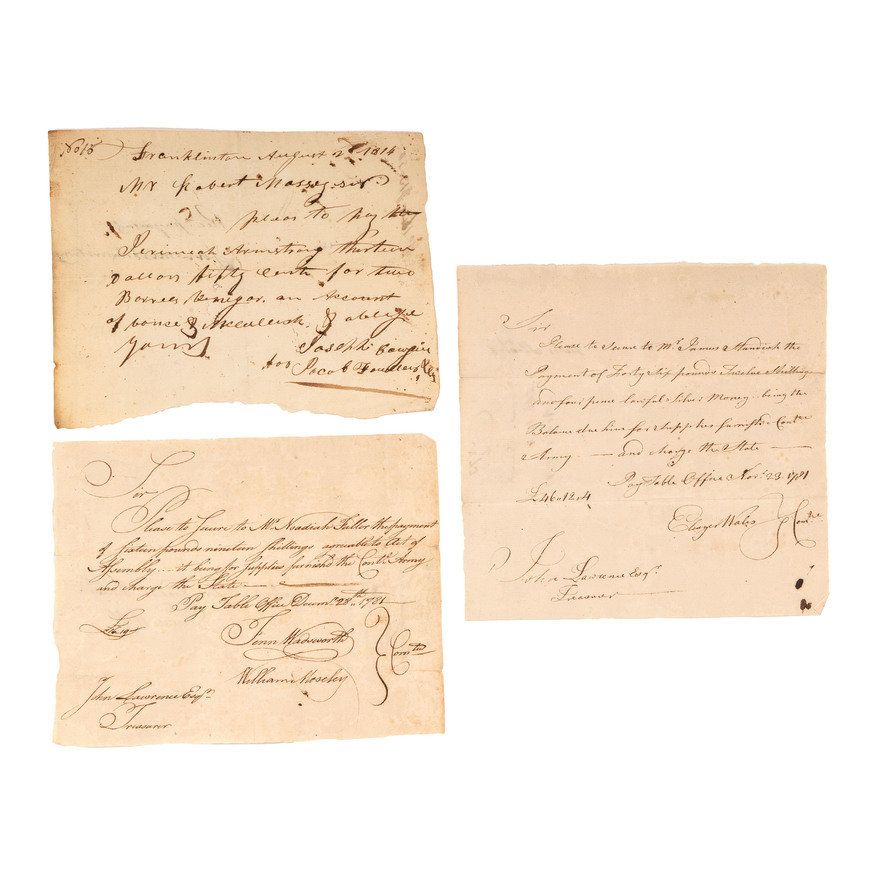 No 15 Franklinton August 2d 1814
Mr Robert Massey Sir
pleas to pay
Jerimeah Armstrong thirteen
Dollars fifty Cents for two
Borrels Venegar, an Account
of & oblige
Yours Joseph
for Jacob
Sir
Please to Secure to Mr. Noadiah Fuller the payment
of Sixteen pounds nineteen Shillings agreeable to Act of
Assembly — it being for Supplies furnish'd the Contl. Army
and charge the State —
Pay Table Office Decemr. 28th. 1781
£16..19
Fenn Wadsworth
William Moseley
Comtee
John Lawrence Esqr.
Treasurer
Sir
Please to Secure to Mr. James Standish the
Payment of Forty Six pounds Twelve Shillings
and four pence lawful Silver Money being the
Balance due him for Supplies furnish'd Contl.
Army — and charge the State —
Pay Table Office Novr. 23. 1781
£46..12..4
Eleazer Wales
Comtee
John Lawrence Esqr.
Treasurer